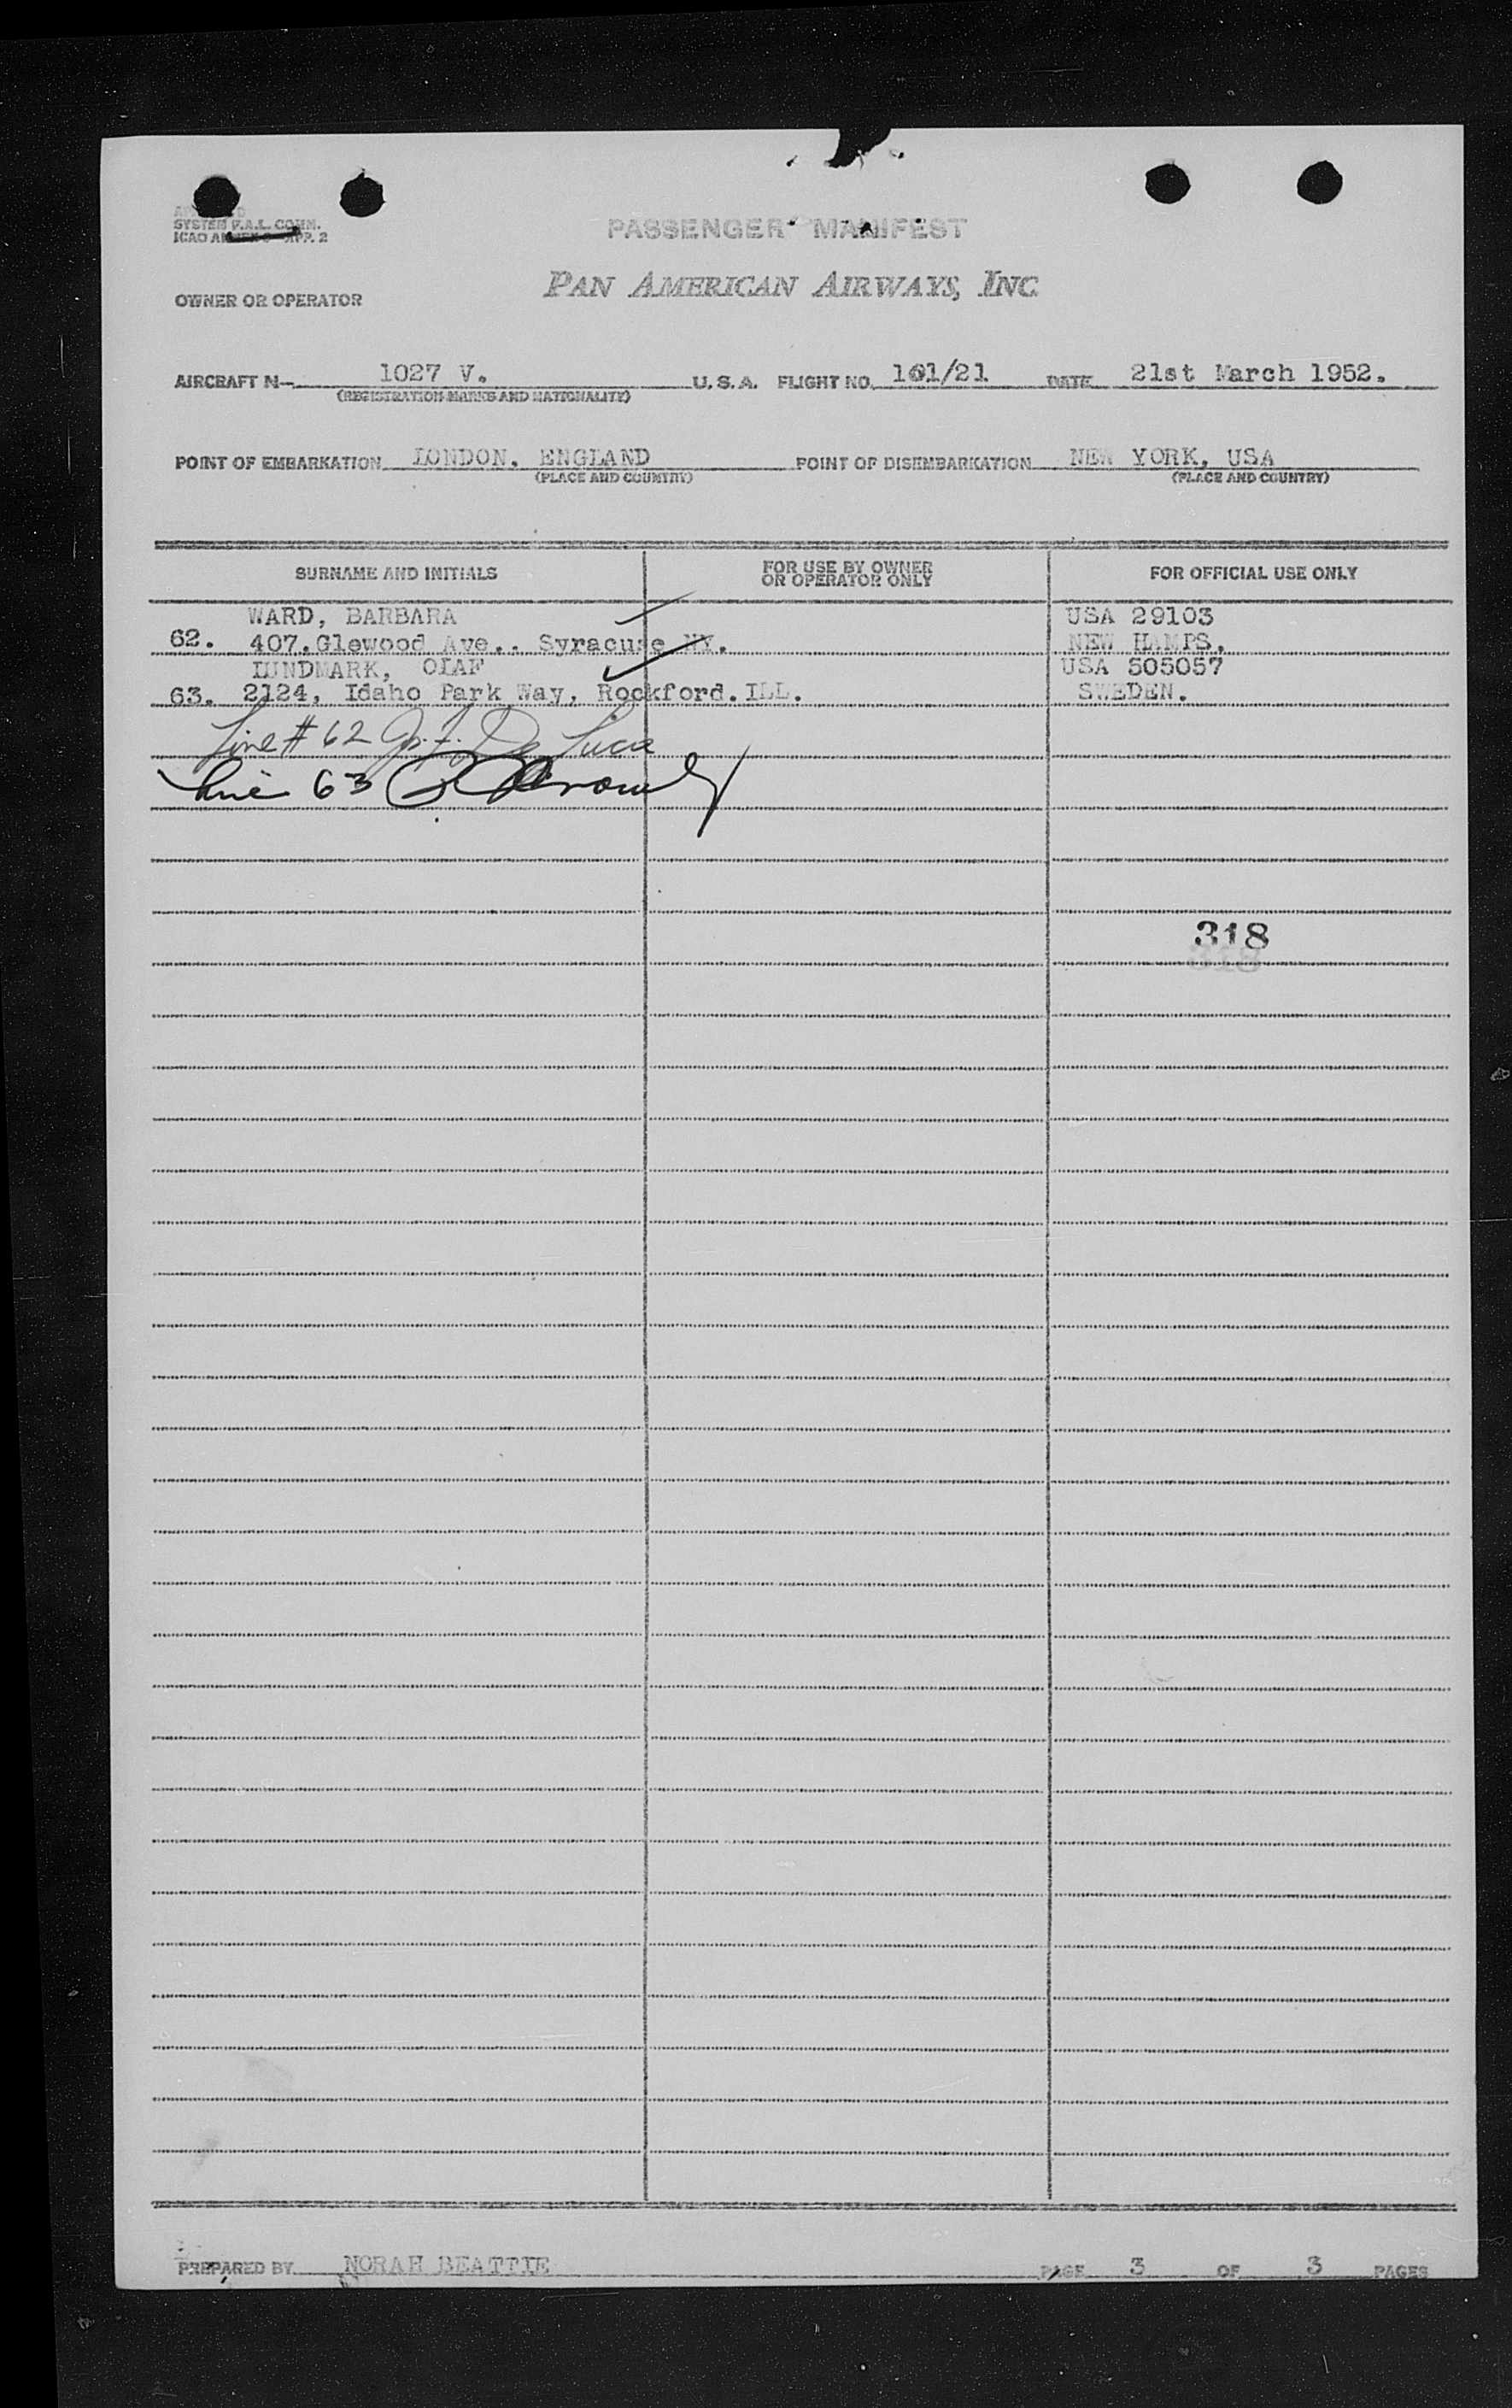 SYSTEM F.A.L. COMM.
ICAO ANNEX 9 APP. 2
PASSENGER MANIFEST
PAN AMERICAN AIRWAYS, INC.
OWNER OR OPERATOR
AIRCRAFT N- 1027 V. U.S.A. FLIGHT NO. 101/21 DATE 21st March 1952.
(REGISTRATION MARKS AND NATIONALITY)
POINT OF EMBARKATION LONDON, ENGLAND POINT OF DISEMBARKATION NEW YORK, USA
(PLACE AND COUNTRY) (PLACE AND COUNTRY)
SURNAME AND INITIALS FOR USE BY OWNER OR OPERATOR ONLY FOR OFFICIAL USE ONLY
WARD, BARBARA USA 29103
62. 407.Glewood Ave.. Syracuse NY. NEW HAMPS.
LUNDMARK, OLAF USA 505057
63. 2124, Idaho Park Way, Rockford.ILL. SWEDEN.
Line # 62 J. F. De Luca
Line 63
318
318
PREPARED BY NORAH BEATTIE PAGE 3 OF 3 PAGES